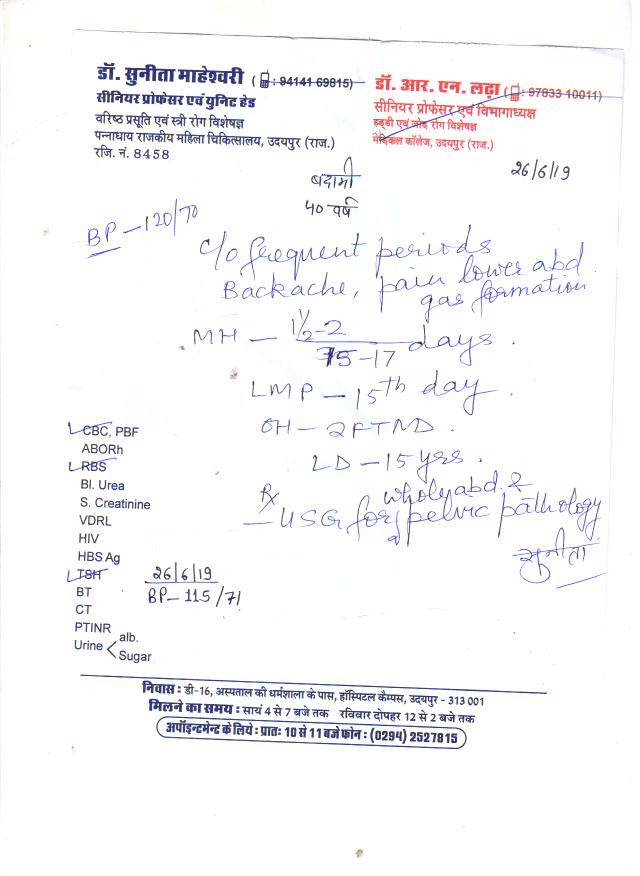 डॉ. सुनीता माहेश्वरी ( : 94141 69815)
सीनियर प्रोफेसर एवं युनिट हेड
वरिष्ठ प्रसूति एवं स्त्री रोग विशेषज्ञ
पन्नाधाय राजकीय महिला चिकित्सालय, उदयपुर (राज.)
रजि. नं. 8458
डॉ. आर. एन. लढ़ा ( : 97833 10011)
सीनियर प्रोफेसर एवं विभागाध्यक्ष
हड्डी एवं जोड़ रोग विशेषज्ञ
मेडिकल कॉलेज, उदयपुर (राज.)
26/6/19
बदामी
40 वर्ष
BP - 120/70
c/o frequent periods
Backache, pain lower abd
gas formation
MH - 1½-2/15-17 days.
LMP - 15th day
OH - 2FTND.
LD - 15 yrs.
Rx whole abd. &
- USG for pelvic pathology
सुनीता
CBC, PBF
ABORh
RBS
Bl. Urea
S. Creatinine
VDRL
HIV
HBS Ag
TSH 26/6/19
BT BP- 115/71
CT
PTINR
Urine < alb.
Sugar
निवास : डी-16, अस्पताल की धर्मशाला के पास, हॉस्पिटल कैम्पस, उदयपुर - 313 001
मिलने का समय : सायं 4 से 7 बजे तक रविवार दोपहर 12 से 2 बजे तक
अपॉइन्टमेन्ट के लिये : प्रातः 10 से 11 बजे फोन : (0294) 2527815